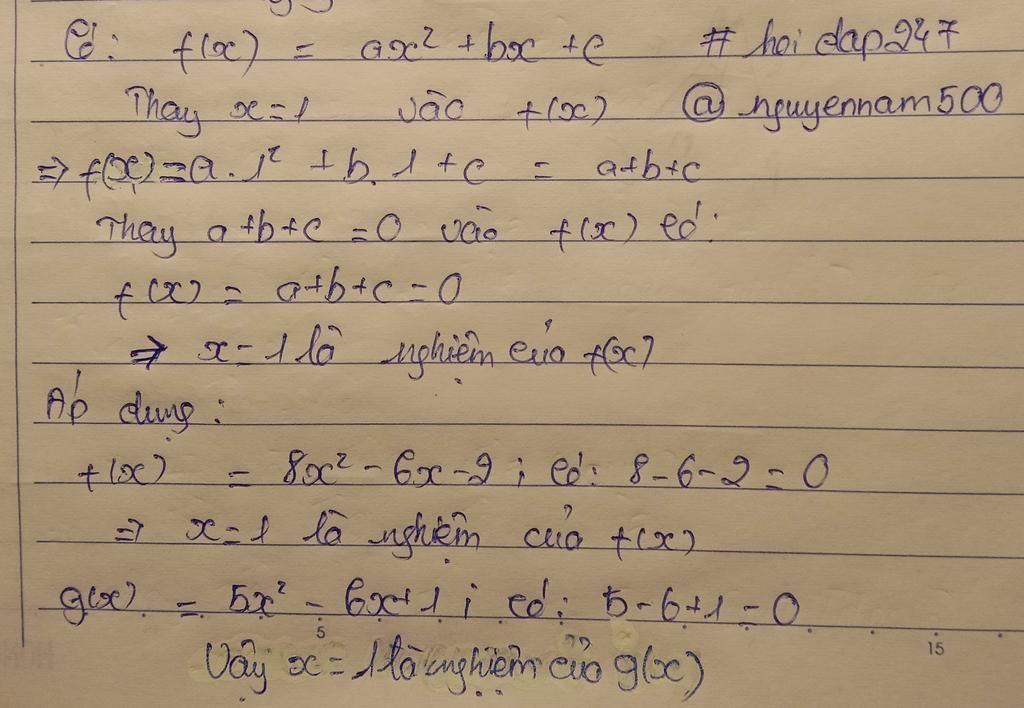 Có: f(x) = ax² + bx + c # hoidap247
Thay x=1 vào f(x) @nguyennam500
⇒ f(x)=a.1² + b.1 + c = a+b+c
Thay a+b+c=0 vào f(x) có:
f(x) = a+b+c=0
⇒ x=1 là nghiệm của f(x)
Áp dụng:
f(x) = 8x² - 6x - 2; có: 8-6-2=0
⇒ x=1 là nghiệm của f(x)
g(x) = 5x² - 6x+1; có: 5-6+1=0
5 15
Vậy x=1 là nghiệm của g(x)